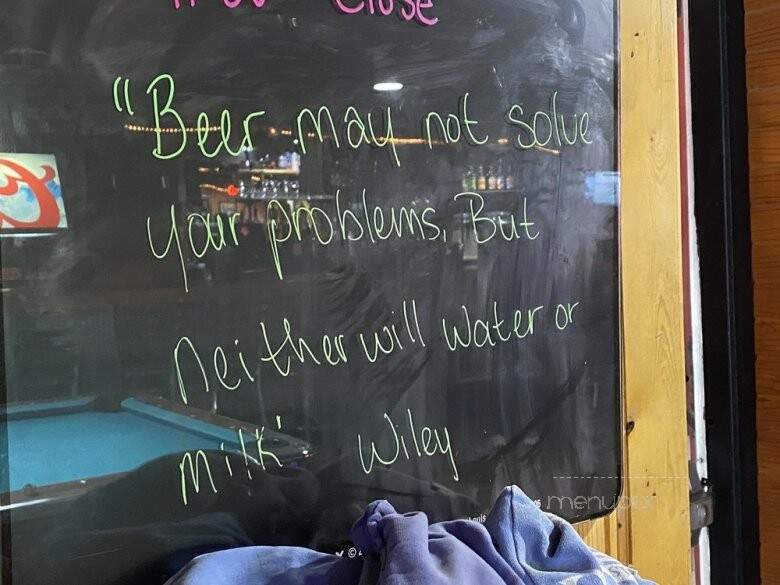 Close
"Beer may not solve
your problems. But
neither will water or
milk" Wiley